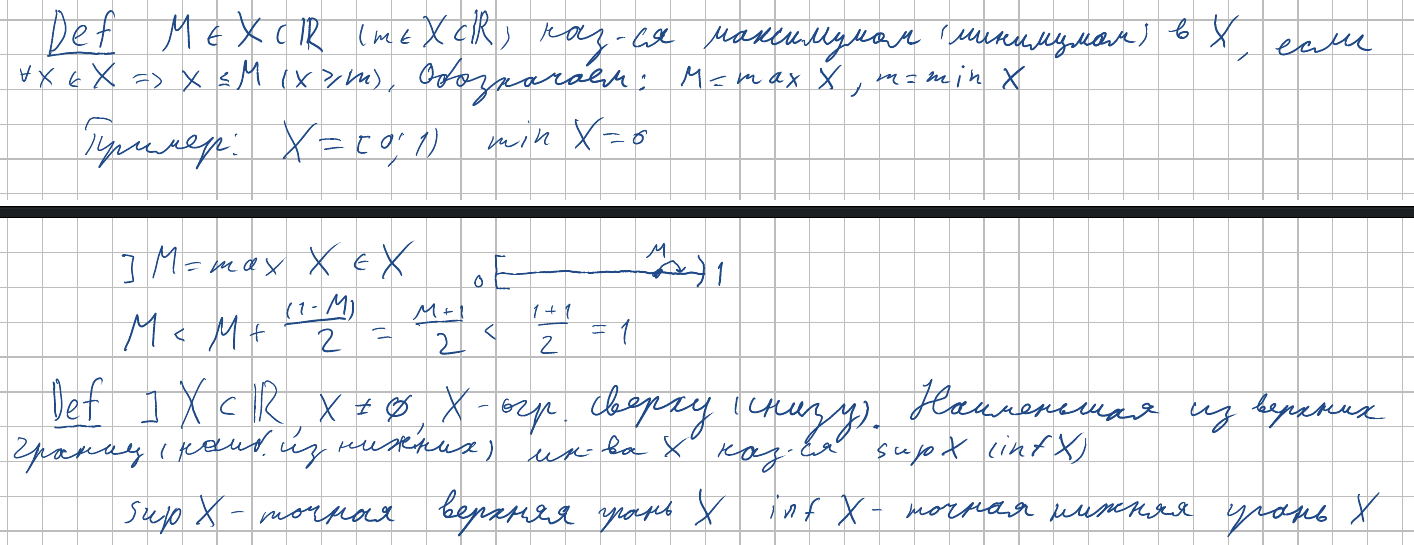 Def M ∈ X ⊂ ℝ (m ∈ X ⊂ ℝ) наз-ся максимумом (минимумом) в X, если
∀x ∈ X => x ≤ M (x ≥ m). Обозначаем: M = max X, m = min X
Пример: X = [0; 1) min X = 0
] M = max X ∈ X 0 [ M ) 1
M < M + (1-M)/2 = M+1/2 < 1+1/2 = 1
Def ] X ⊂ ℝ, X ≠ ∅, X - огр. сверху (снизу). Наименьшая из верхних
границ (наиб. из нижних) мн-ва X наз-ся sup X (inf X)
sup X - точная верхняя грань X inf X - точная нижняя грань X